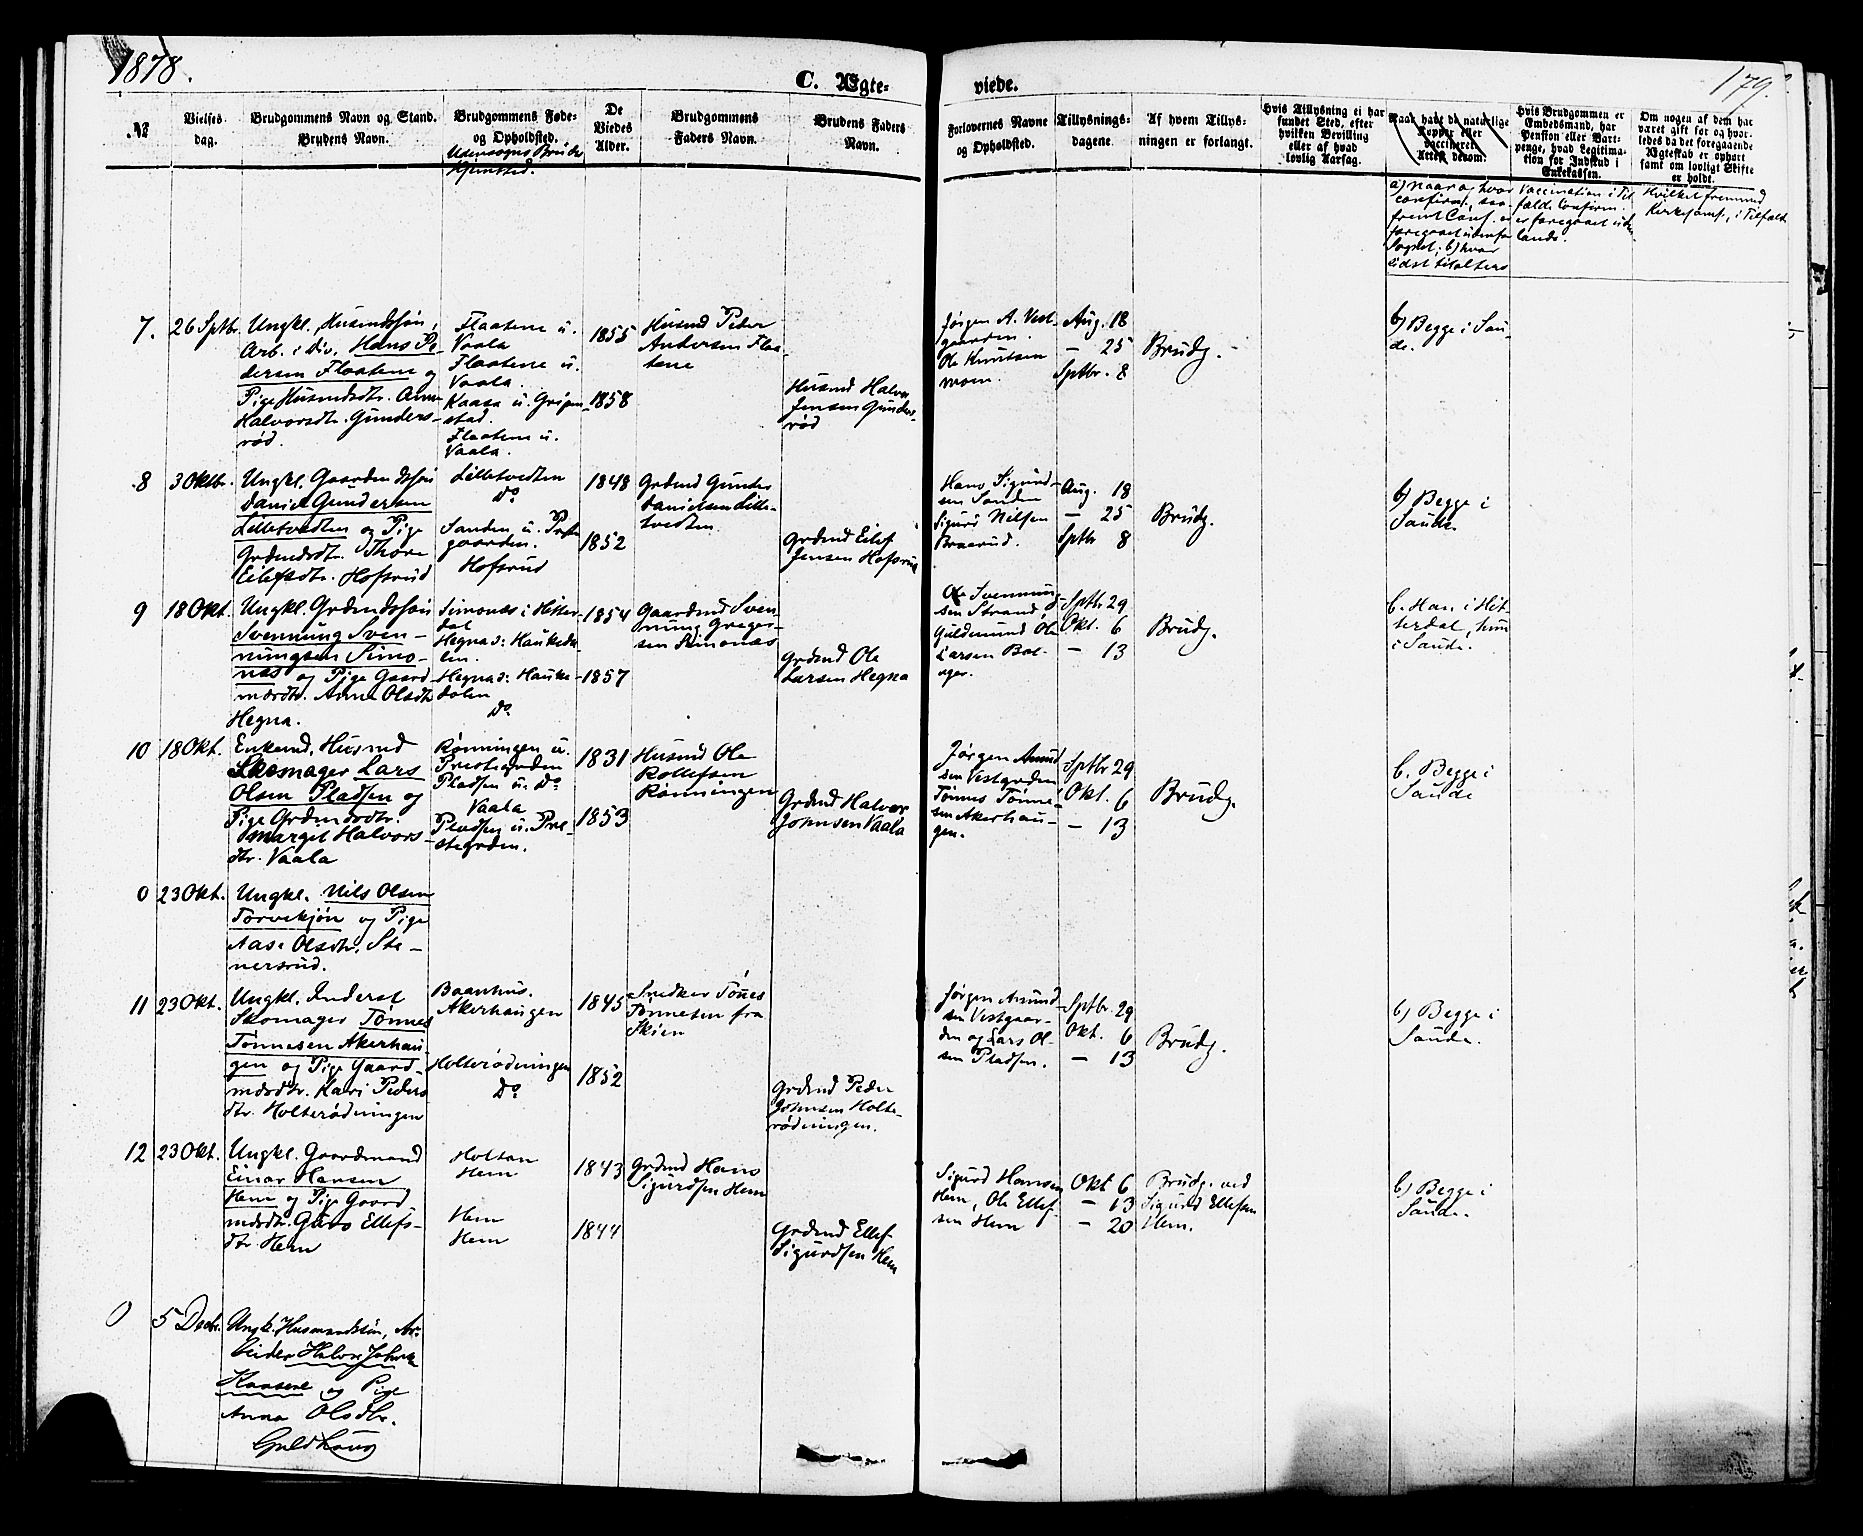 1878.
179.
C. Ægte-
viede.
№
Vielses
dag.
Brudgommens Navn og Stand.
Brudens Navn.
Brudgommens Føde-
og Opholdsted.
Udensogns Bruds
Hjemsted.
De
Viedes
Alder.
Brudgommens
Faders Navn.
Brudens Faders
Navn.
Forlovernes Navne
og Opholdsted.
Tillysnings-
dagene.
Af hvem Tillys-
ningen er forlangt.
Hvis Tillysning ei har
fundet Sted, efter
hvilken Bevilling
eller af hvad
lovlig Aarsag.
Naar havt de naturlige
Kopper eller
vaccineret.
Attest derom.
Hvis Brudgommen er
Embedsmand, har
Pension eller Vart-
penge, hvad Legitima-
tion for Indskud i
Enkekassen.
Om nogen af dem har
været gift før og hvor-
ledes da det foregaaende
Ægteskab er ophørt
samt om lovligt Skifte
er holdt.
a) naar og hvor
confirm., saa-
fremt Conf. er
foregaaet udenfor
Sognet; b) hvor
sidst tilholders
Vaccination i Til-
fælde Confirm.
er foregaaet uden-
lands.
Hvilket fremmed
Kirkesamf., i Tilfælde
7.
26 Sptbr.
Ungkl. Husmdssøn,
Arb. i Div. Hans Pe-
dersen Flaatene og
Pige Husmdsdtr. Anne
Halvorsdtr. Gunders-
rød.
Flaatene u.
Vaala
Flaatene u.
Vaala.
Kaasa u. Gripen-
stad.
Flaatene u.
Vaala.
1855
1858
Husmd Peder
Andersen Flaa-
tene
Husmd Halvor
Jensen Gunders-
rød
Jørgen A. Vest-
gaarden.
Ole Knutsen
moen.
Aug. 18
— 25
Sptbr. 8
Brudg.
b) Begge i Sau-
de.
8
3 Oktbr.
Ungkl. Gaardmdssøn
Daniel Gundersen
Lilletvedten og Pige
Grdmdsdtr. Thore
Eilefsdtr. Hofsrud
Lilletvedten
Do
Sanden u. Prest-
gaarden.
Hofsrud
1848
1852
Grdmd Gunder
Danielsen Lille-
tvedten
Grdmd Eilef
Jensen Hofsrud
Hans Sigurd-
sen Sanden
Sigurd Nilsen
Braarud.
Aug. 18
— 25
Sptbr 8
Brudg.
b) Begge i
Saude.
9
18 Okt.
Ungkl. Grdmdssøn
Svennung Sven-
nungsen Simo-
næs og Pige Gaard-
mdsdtr. Anne Olsdtr.
Hegna.
Simonæs i Hitter-
dal
Hegna s: Haukeda-
len.
Hegna s: Hauke-
dalen
Do
1854
1857
Gaardmd Sven-
nung Greger-
sen Simonæs
Grdmd Ole
Larsen Hegna
Ole Svennung-
sen Strand
Guldmund Ole
Larsen Bol-
ager.
Sptbr 29
Okt. 6
— 13
Brudg.
b. Han i Hit-
terdal, hun
i Saude.
10
18 Okt.
Enkemd. Husmd
Skomager Lars
Olsen Pladsen og
Pige Grdmdsdtr.
Margit Halvors-
dtr. Vaala
Rønningen u.
Prestegrden
Pladsen u. Do
Vaala
Pladsen u. Pre-
stegrden.
1831
1853
Husmd Ole
Rollefsen
Rønningen
Grdmd Halvor
Johnsen Vaala
Jørgen Amund-
sen Vestgrden
Tønnes Tønne-
sen Akerhau-
gen.
Sptbr 29
Okt. 6
— 13
Brudg.
b. Begge i
Saude
0
23 Okt.
Ungkl. Nils Olsen
Torvekjøn og Pige
Aase Olsdtr. Ste-
nersrud.
11
23 Okt.
Ungkl. Inderst
Skomager Tønnes
Tønnesen Akerhau-
gen og Pige Gaard-
mdsdtr. Kari Peders-
dtr. Holterødningen
Baanhus.
Akerhaugen
Holterødningen
Do
1845
1852
Snedker Tønnes
Tønnesen fra
Skien
Grdmd Peder
Johnsen Holte-
rødningen.
Jørgen Amund-
sen Vestgaar-
den og Lars Ol-
sen Pladsen.
Sptbr. 29
Okt. 6
— 13
Brudg.
b) Begge i
Saude.
12
23 Okt.
Ungkl. Gaardmand
Einar Hansen
Hem og Pige Gaard-
mdsdtr. Guro Ellefs-
dtr. Hem
Holtan
Hem
Hem
Hem
1843
1844
Grdmd Hans
Sigurdsen Hem
Grdmd Ellef
Sigurdsen Hem
Sigurd Hansen
Hem, Ole Ellef-
sen Hem
Okt 6
— 13
— 20
Brudg. ved
Sigurd Ellefsen
Hem.
b) Begge i
Saude.
0
5 Decbr.
Ungk. Husmandssøn, Ar-
beider Halvor Johnsen
Kaasene og Pige
Anna Olsdtr.
Guldhaug